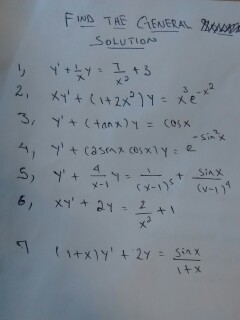 FIND THE GENERAL
SOLUTION
1, y' + 1/x y = 7/x² + 3
2, xy' + (1+2x²)y = x³e^-x²
3, y' + (tanx)y = cosx
4, y' + (2sinx cosx)y = e^-sin²x
5, y' + 4/x-1 y = 1/(x-1)⁵ + sinx/(x-1)⁴
6, xy' + 2y = 2/x² + 1
7 (1+x)y' + 2y = sinx/1+x